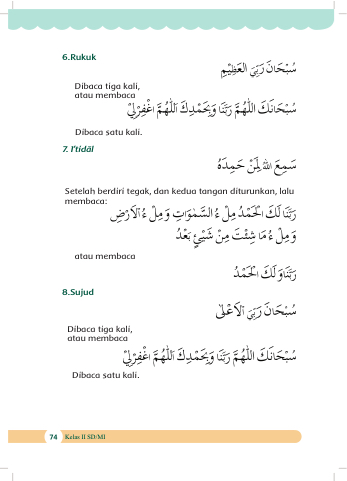 6.Rukuk
سُبْحَانَ رَبِّيَ الْعَظِيْمِ
Dibaca tiga kali,
atau membaca
سُبْحَانَكَ اللّٰهُمَّ رَبَّنَا وَبِحَمْدِكَ اَللّٰهُمَّ اغْفِرْلِيْ
Dibaca satu kali.
7. I'tidāl
سَمِعَ اللهُ لِمَنْ حَمِدَهُ
Setelah berdiri tegak, dan kedua tangan diturunkan, lalu
membaca:
رَبَّنَا لَكَ الْحَمْدُ مِلْ ءُ السَّمٰوَاتِ وَ مِلْ ءُ الْاَرْضِ
وَ مِلْ ءُ مَا شِئْتَ مِنْ شَيْئٍ بَعْدُ
atau membaca
رَبَّنَا وَ لَكَ الْحَمْدُ
8.Sujud
سُبْحَانَ رَبِّيَ الْاَعْلٰى
Dibaca tiga kali,
atau membaca
سُبْحَانَكَ اللّٰهُمَّ رَبَّنَا وَبِحَمْدِكَ اَللّٰهُمَّ اغْفِرْلِيْ
Dibaca satu kali.
74 Kelas II SD/MI